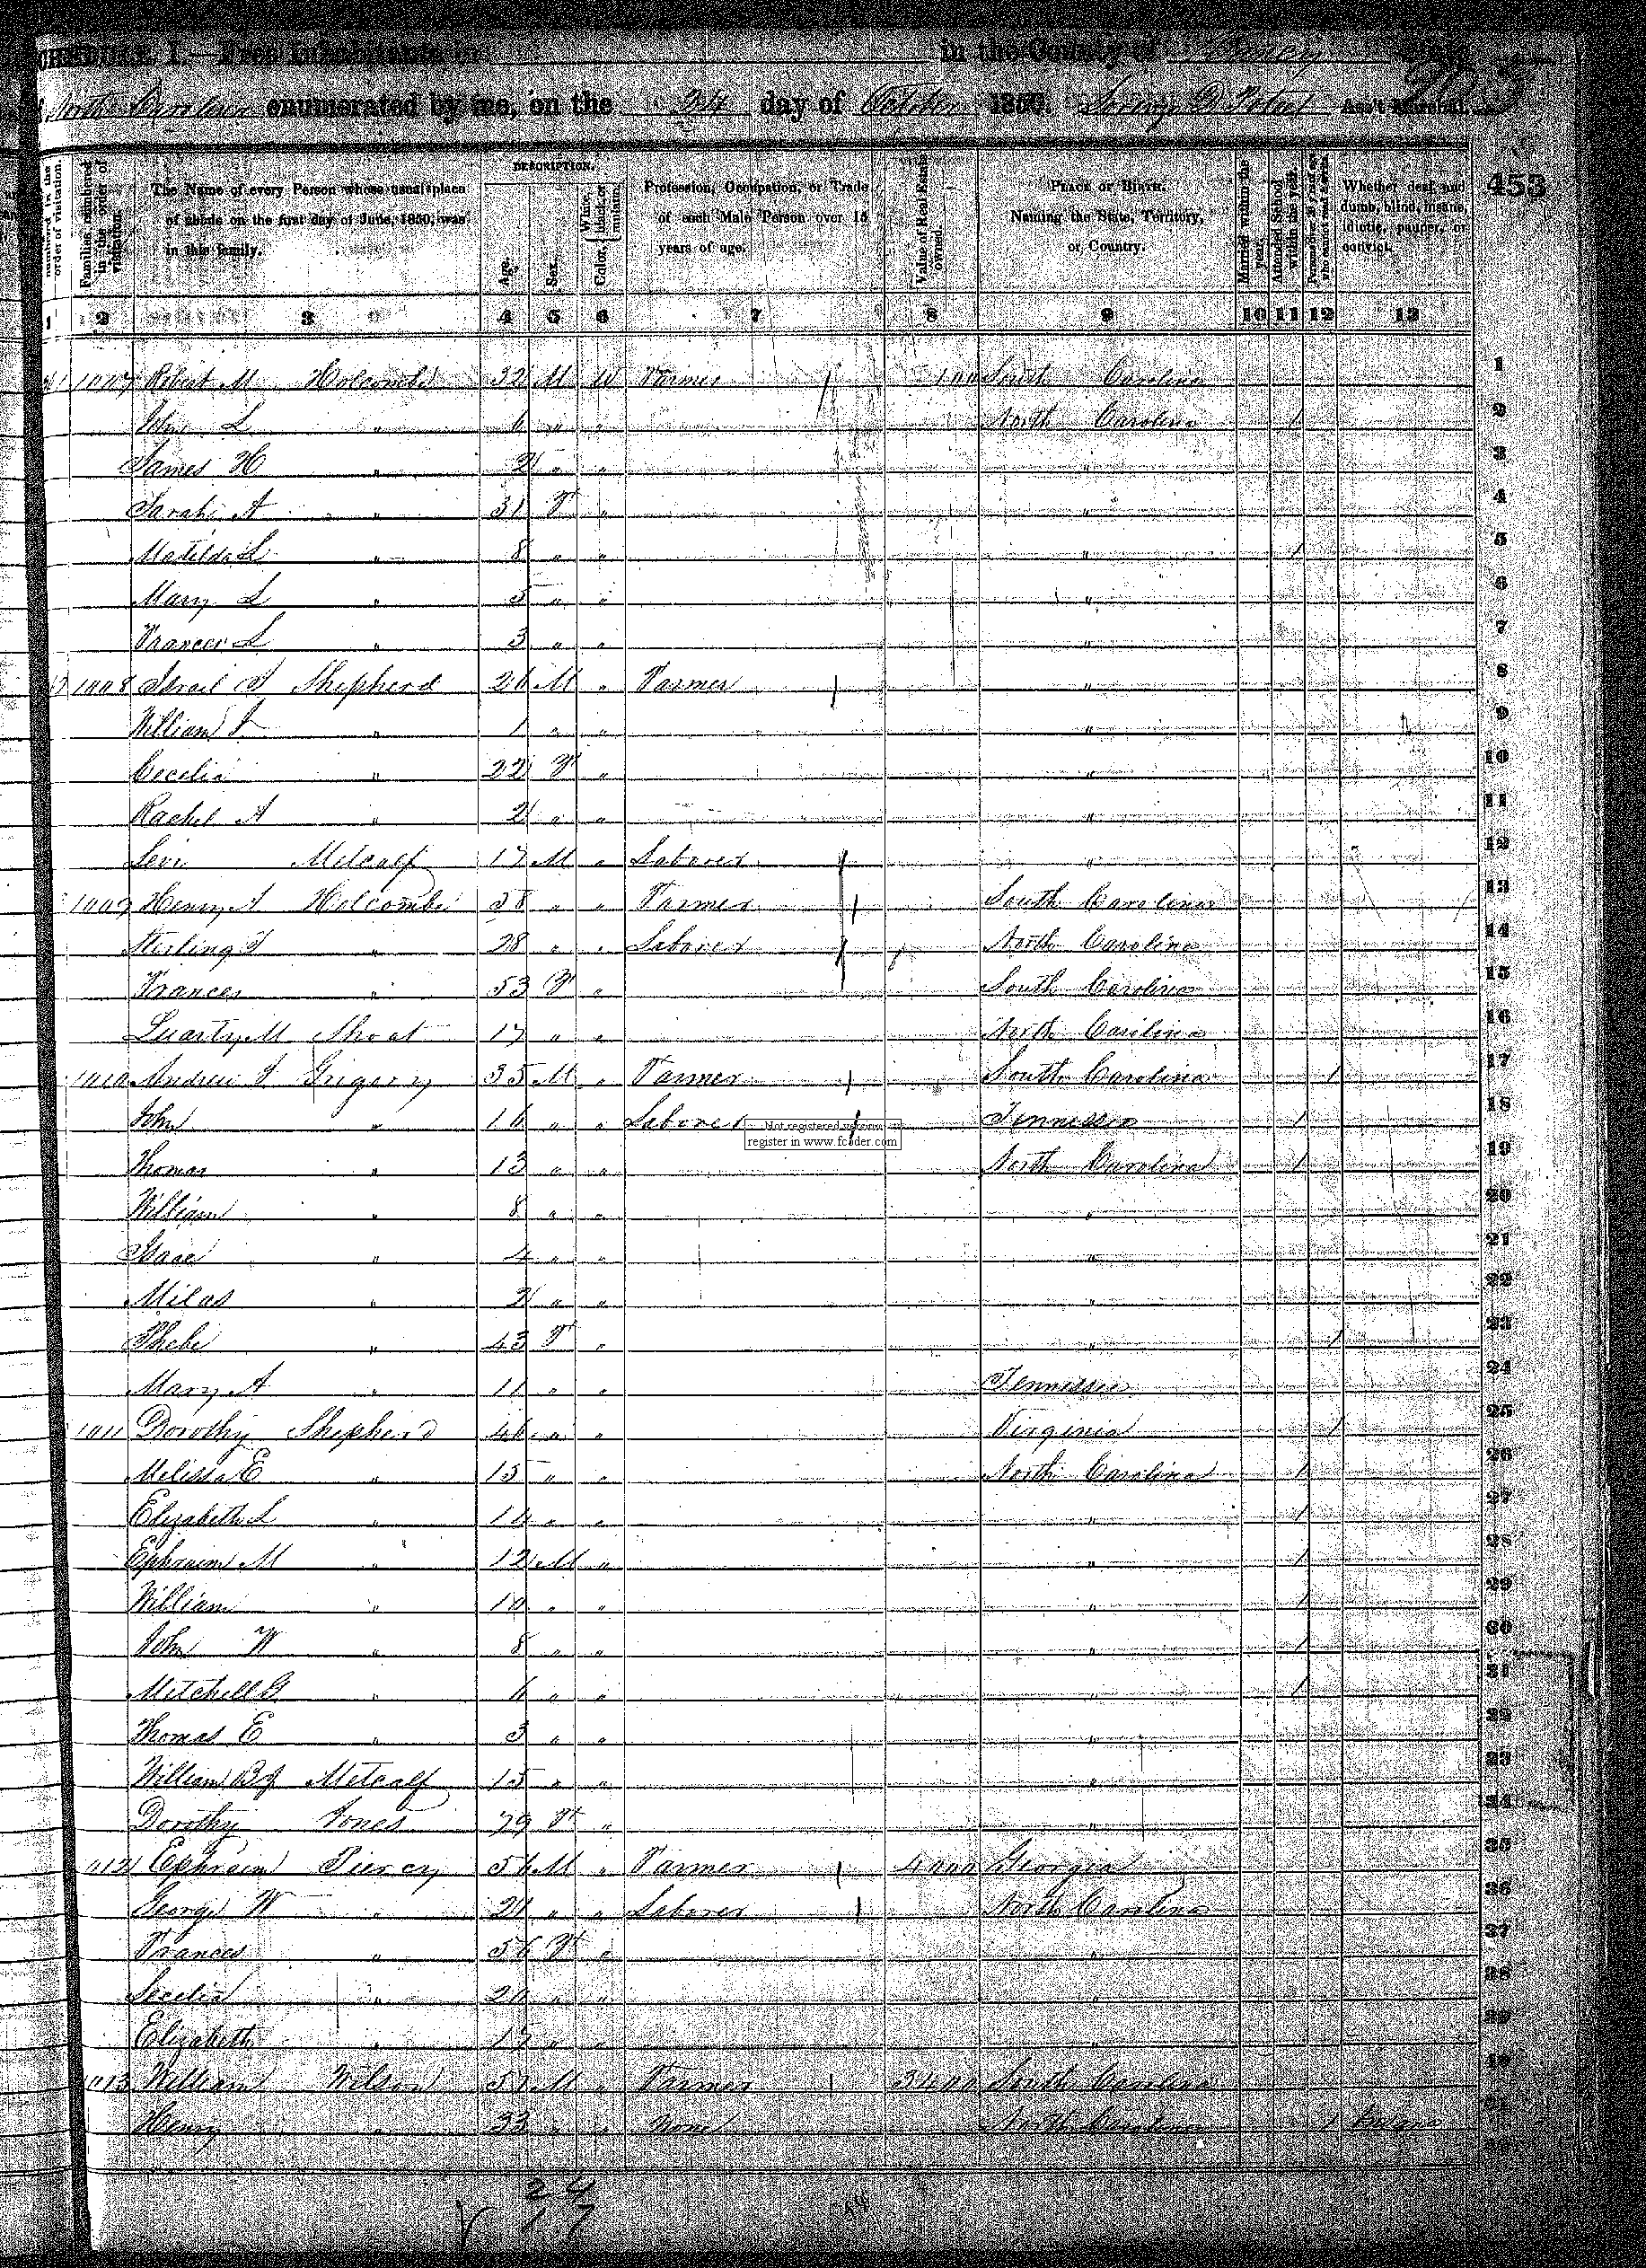 SCHEDULE I.—Free Inhabitants in in the County of Yancey State
of North Carolina enumerated by me, on the day of October 1850. Ass't Marshal.
453
numbered in the order of visitation.
Families numbered in the order of visitation.
The Name of every Person whose usual place of abode on the first day of June, 1850, was in this family.
DESCRIPTION.
Age.
Sex.
Color, White, black, or mulatto.
Profession, Occupation, or Trade of each Male Person over 15 years of age.
Value of Real Estate owned.
PLACE OF BIRTH. Naming the State, Territory, or Country.
Married within the year.
Attended School within the year.
Persons over 20 y'rs of age who cannot read & write.
Whether deaf and dumb, blind, insane, idiotic, pauper, or convict.
1 2 3 4 5 6 7 8 9 10 11 12 13
1007 Robert M Holcombe 32 M W Farmer 100 South Carolina 1
John L " 6 " " North Carolina 1 2
James H " 2 " " " 3
Sarah A " 31 F " " 4
Matilda L " 8 " " " 1 5
Mary L " 5 " " " 6
Frances L " 3 " " " 7
1008 Israil Shepherd 26 M " Farmer " 8
William " 1 " " " 9
Cecelia " 22 F " " 10
Rachel A " 2 " " " 11
Levi Metcalf 17 M " Laborer " 12
1009 Henry Holcombe 58 " " Farmer South Carolina 13
Sterling " 28 " " Laborer North Carolina 14
Frances " 53 F " South Carolina 15
M Shoat 17 " " North Carolina 16
1010 Andrew Grigory 35 M " Farmer South Carolina 1 17
John " 16 " " Laborer Tennessee 1 18
Not registered version
register in www.fcoder.com
Thomas " 13 " " North Carolina 1 19
William " 8 " " " 20
Isaac " 4 " " " 21
Milas " 2 " " " 22
Phebe " 43 F " " 1 23
Mary A " 11 " " Tennessee 24
1011 Dorothy Shepherd 46 " " Virginia 1 25
Melissa E " 15 " " North Carolina 1 26
Elizabeth L " 14 " " " 1 27
Ephraim M " 12 M " " 1 28
William " 10 " " " 1 29
John W " 8 " " " 1 30
Mitchell G " 6 " " " 1 31
Thomas E " 3 " " " 32
William B J Metcalf 15 " " " 33
Dorothy Jones 79 F " " 34
1012 Ephraim Piercy 56 M " Farmer 4000 Georgia 35
George W " 24 " " Laborer North Carolina 36
Frances " 56 F " " 37
Secelia " 20 " " " 38
Elizabeth " 17 " " " 39
1013 William Wilson 57 M " Farmer 3400 South Carolina 40
Henry " 33 " " None North Carolina 1 41
42
24
17